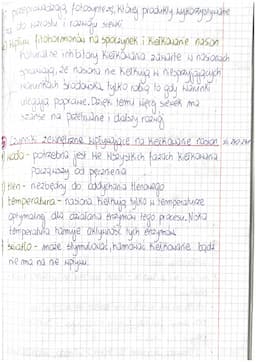 przeprowadzają fotosyntezę, której produkty wykorzystywane
są do wzrostu i rozwoju siewki
Wpływ fitohormonów na spoczynek i kiełkowanie nasion
Naturalne inhibitory kiełkowania zawarte w nasionach
sprawiają, że nasiona nie kiełkują w niesprzyjających
warunkach środowiska, tylko robią to gdy warunki
ulegają poprawie. Dzięki temu młoda siewka ma
szanse na przetrwanie i dalszy rozwój
Czynniki zewnętrzne wpływające na kiełkowanie nasion
woda - potrzebna jest we wszystkich fazach kiełkowania
począwszy od pęcznienia
tlen - niezbędny do oddychania tlenowego
temperatura - nasiona kiełkują tylko w temperaturze
optymalnej dla działania enzymów tego procesu. Niska
temperatura hamuje aktywność tych enzymów
światło - może stymulować, hamować kiełkowanie bądź
nie ma na nie wpływu